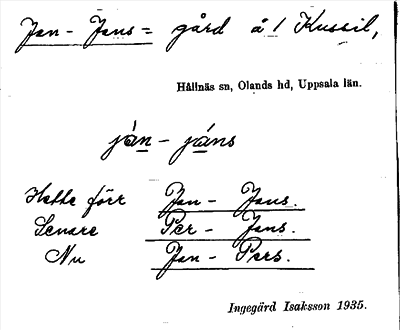 Jan - Jans = gård å / Kussil,
Hållnäs sn, Olands hd, Uppsala län.
ján - jáns
Hette förr Jan - Jans.
Senare Per - Jans.
Nu Jan - Pers.
Ingegärd Isaksson 1935.